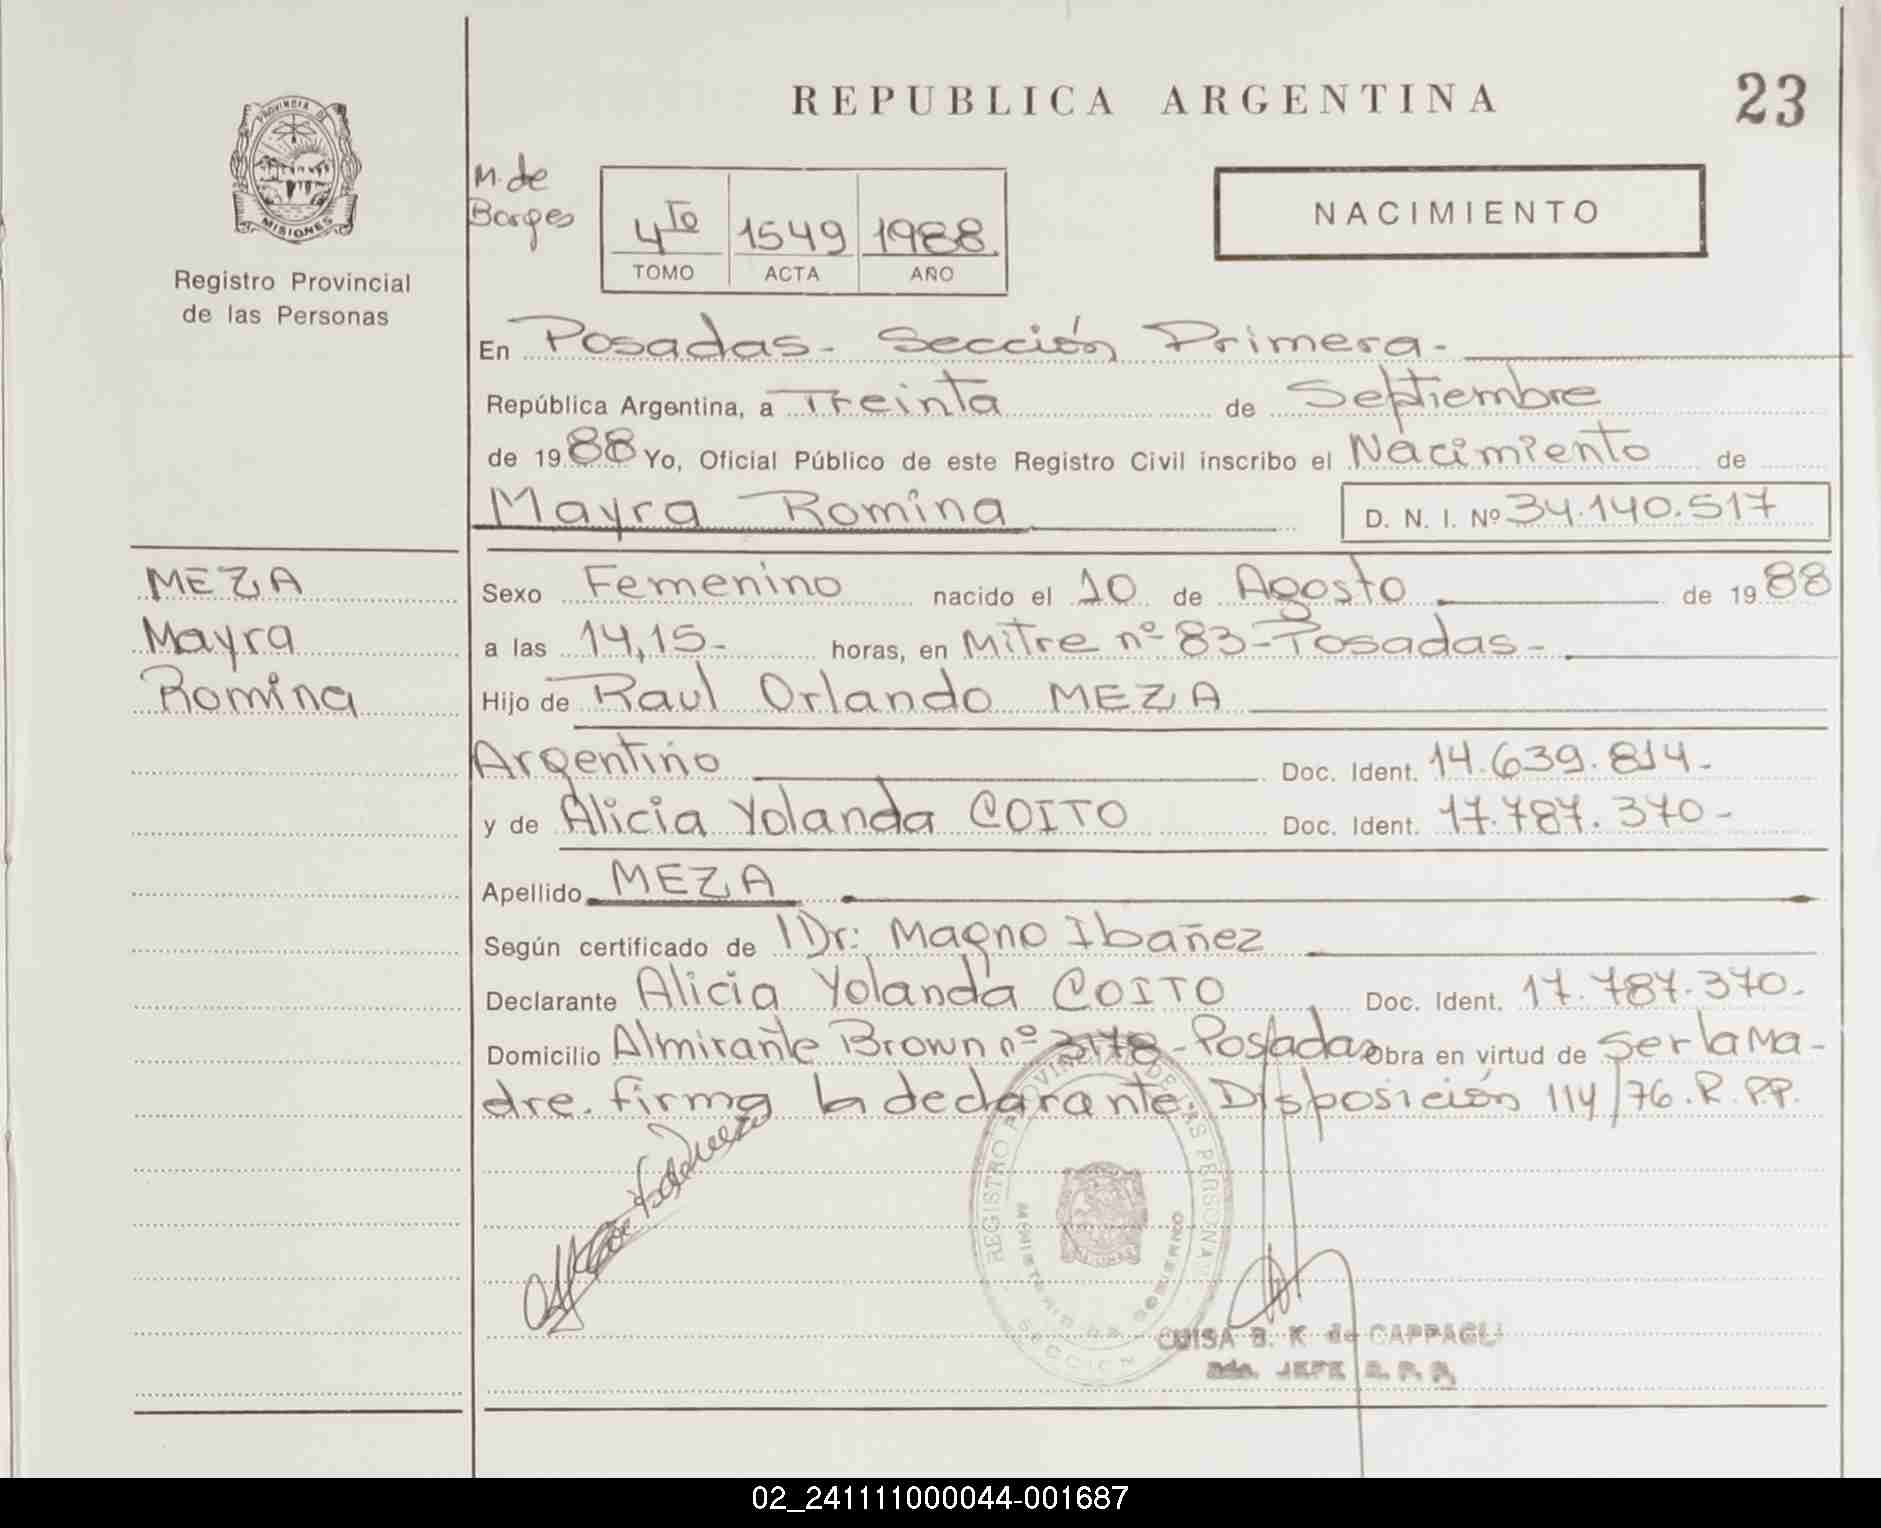 REPUBLICA ARGENTINA
23
PROVINCIA DE
MISIONES
Registro Provincial
de las Personas
M. de
Borges
4to 1549 1988
TOMO ACTA AÑO
NACIMIENTO
En Posadas - Sección Primera -
República Argentina, a Treinta de Septiembre
de 1988 Yo, Oficial Público de este Registro Civil inscribo el Nacimiento de
Mayra Romina D. N. I. Nº 34.140.517
MEZA
Mayra
Romina
Sexo Femenino nacido el 10 de Agosto de 1988
a las 14,15- horas, en Mitre nº 83 - Posadas -
Hijo de Raul Orlando MEZA
Argentino Doc. Ident. 14.639.814-
y de Alicia Yolanda COITO Doc. Ident. 17.787.370-
Apellido MEZA
Según certificado de Dr: Magno Ibañez
Declarante Alicia Yolanda COITO Doc. Ident. 17.787.370-
Domicilio Almirante Brown nº 3178 - Posadas Obra en virtud de ser la Ma-
dre. firma la declarante. Disposición 114/76. R.P.P.
REGISTRO PROVINCIAL DE LAS PERSONAS
MINISTERIO DE GOBIERNO
SECCION
LUISA B. K de CAPPAGLI
JEFE
02_241111000044-001687